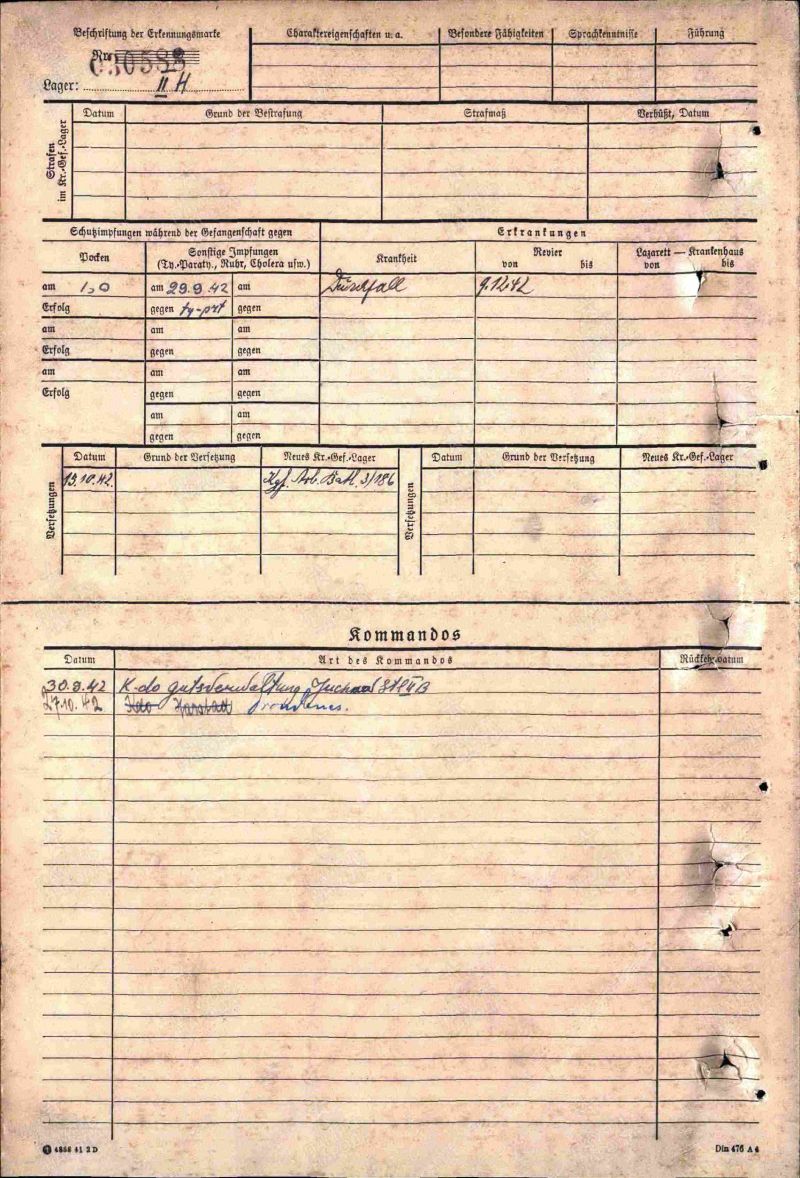 Beschriftung der Erkennungsmarke
Charaktereigenschaften u. a.
Besondere Fähigkeiten
Sprachkenntnisse
Führung
Nr.
Lager: II H
Strafen im Kr.-Gef.-Lager
Datum
Grund der Bestrafung
Strafmaß
Verbüßt, Datum
Schutzimpfungen während der Gefangenschaft gegen
Erkrankungen
Pocken
Sonstige Impfungen
(Ty.-Paraty., Ruhr, Cholera usw.)
Krankheit
Revier
von bis
Lazarett — Krankenhaus
von bis
am 1,0 am 29.9.42 am Durchfall 9.12.42
Erfolg gegen ty-prt gegen
am am am
Erfolg gegen gegen
am am am
Erfolg gegen gegen
am am
gegen gegen
Versetzungen
Datum
Grund der Versetzung
Neues Kr.-Gef.-Lager
Versetzungen
Datum
Grund der Versetzung
Neues Kr.-Gef.-Lager
13.10.42. Kgf. Arb. Batl. 3/186
Kommandos
Datum
Art des Kommandos
Rückkehrdatum
30.9.42 K-do gutsverwaltung II B
27.10.42 Kdo Harstad Trondenes.
4868 41 2 D
Din 476 A 4